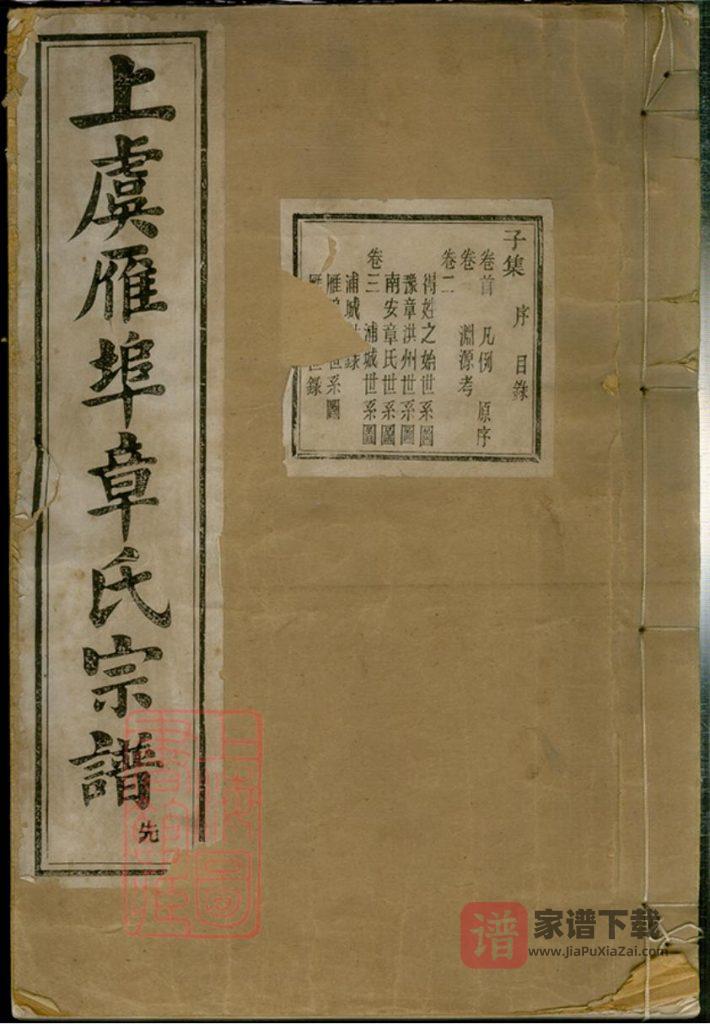 上虞雁埠章氏宗譜
先
子集 序 目錄
卷首 凡例 原序
卷 淵源考
卷二
得姓之始世系圖
豫章洪州世系圖
南安章氏世系圖
卷三 浦城世系圖
浦城 錄
雁 世系圖
雁 世錄
谱
家谱下载
www.JiaPuXiaZai.com